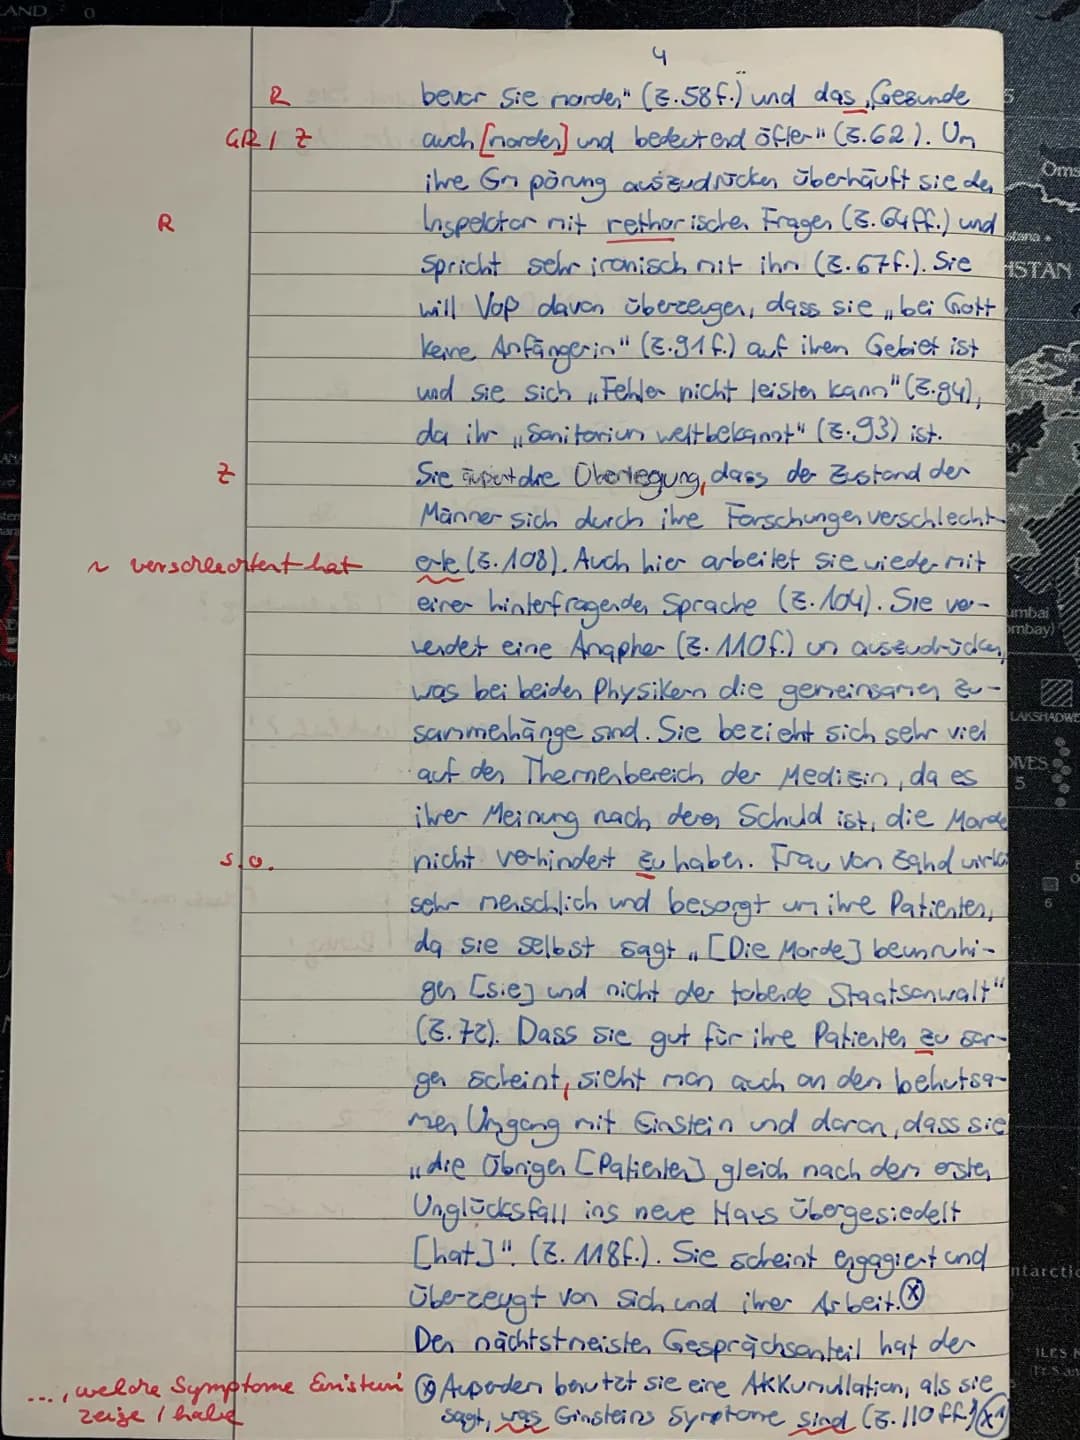 4
R
bevor sie morden" (Z.58f.) und das „Gesunde
GR / Z
auch [morden] und bedeutend öfter" (Z.62). Um
ihre Empörung auszudrücken überhäuft sie den
R
Inspektor mit rethorischen Fragen (Z.64ff.) und
spricht sehr ironisch mit ihm (Z.67f.). Sie
will Voß davon überzeugen, dass sie „bei Gott
keine Anfängerin" (Z.91f.) auf ihrem Gebiet ist
und sie sich „Fehler nicht leisten kann" (Z.94),
da ihr „Sanitorium weltbekannt" (Z.93) ist.
Z
Sie äußert die Überlegung, dass der Zustand der
Männer sich durch ihre Forschungen verschlecht-
~ verschlechtert hat
erte (Z.108). Auch hier arbeitet sie wieder mit
einer hinterfragenden Sprache (Z.104). Sie ver-
wendet eine Anapher (Z.110f.) um auszudrücken,
was bei beiden Physikern die gemeinsamen Zu-
sammenhänge sind. Sie bezieht sich sehr viel
auf den Themenbereich der Medizin, da es
ihrer Meinung nach deren Schuld ist, die Morde
s.o.
nicht verhindert zu haben. Frau von Zahnd wirkt
sehr menschlich und besorgt um ihre Patienten,
da sie selbst sagt „[Die Morde] beunruhi-
gen [sie] und nicht der tobende Staatsanwalt"
(Z.72). Dass sie gut für ihre Patienten zu sor-
gen scheint, sieht man auch an den behutsa-
men Umgang mit Einstein und daran, dass sie
„die Übrigen [Patienten] gleich nach dem ersten
Unglücksfall ins neue Haus übergesiedelt
[hat]". (Z.118f.). Sie scheint engagiert und
überzeugt von sich und ihrer Arbeit. ⓧ
Den nächstmeisten Gesprächsanteil hat der
..., welche Symptome Einstein
zeige / habe
ⓧ Außerdem benutzt sie eine Akkumullation, als sie
sagt, was Einsteins Symptome sind (Z.110ff.)
ASTANA
UMBAI
OMBAY)
LAKSHADWE
DIVES
5
6
5
0